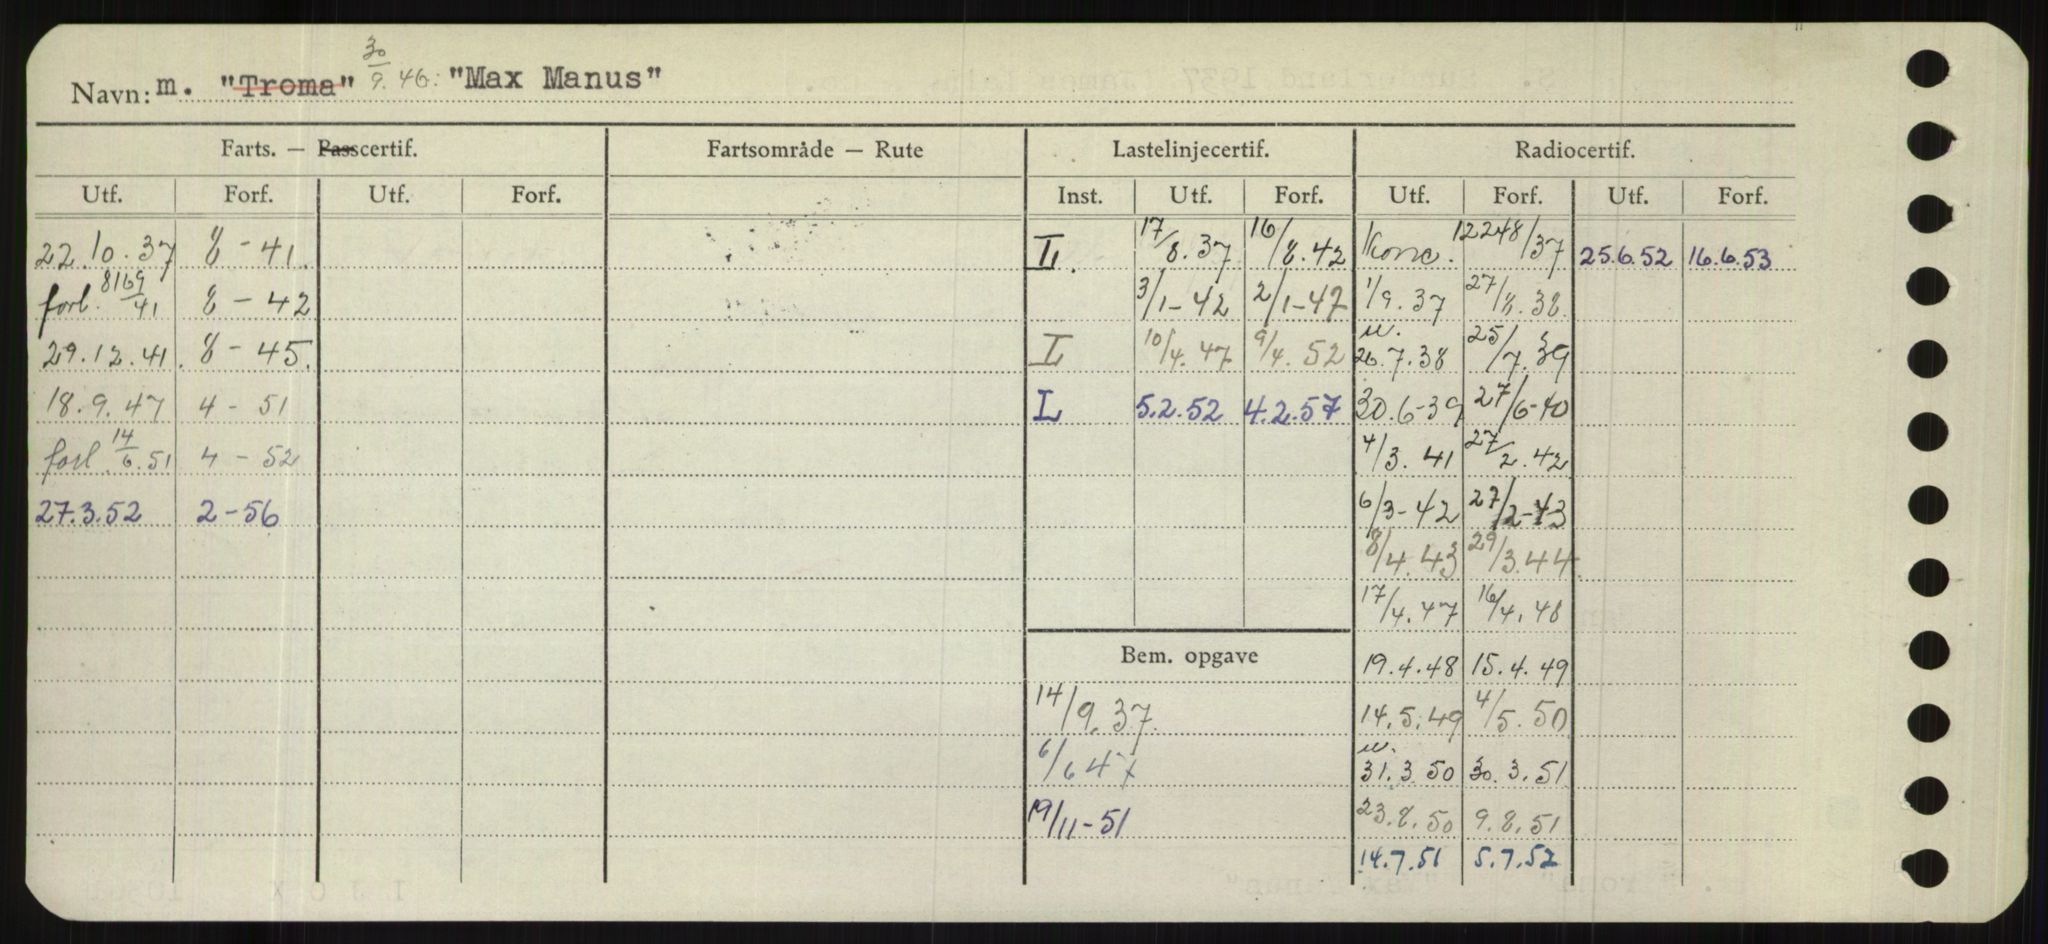 30/9.46.
Navn: m. "Troma" "Max Manus"
Farts. — Passcertif. Fartsområde — Rute Lastelinjecertif. Radiocertif.
Utf. Forf. Utf. Forf. Inst. Utf. Forf. Utf. Forf. Utf. Forf.
22.10.37 8-41. L. 17/8.37 16/8.42 Konc. 12248/37 25.6.52 16.6.53
forl. 8169/41 8-42 3/1-42 2/1-47 1/9.37 27/8.38.
29.12.41. 8-45. L 10/4.47 9/4.52 u. 26.7.38 25/7.39
18.9.47 4-51 L 5.2.52 4.2.57 30.6-39 27/6-40
forl. 14/6.51 4-52 4/3.41 27/2.42
27.3.52 2-56 6/3-42 27/2-43
8/4.43 29/3.44
17/4.47 16/4.48
Bem. opgave 19.4.48 15.4.49
14/9.37. 14.5.49 4/5.50
6/6 47 u. 31.3.50 30.3.51
19/11-51 23.8.50 9.8.51
14.7.51 5.7.52